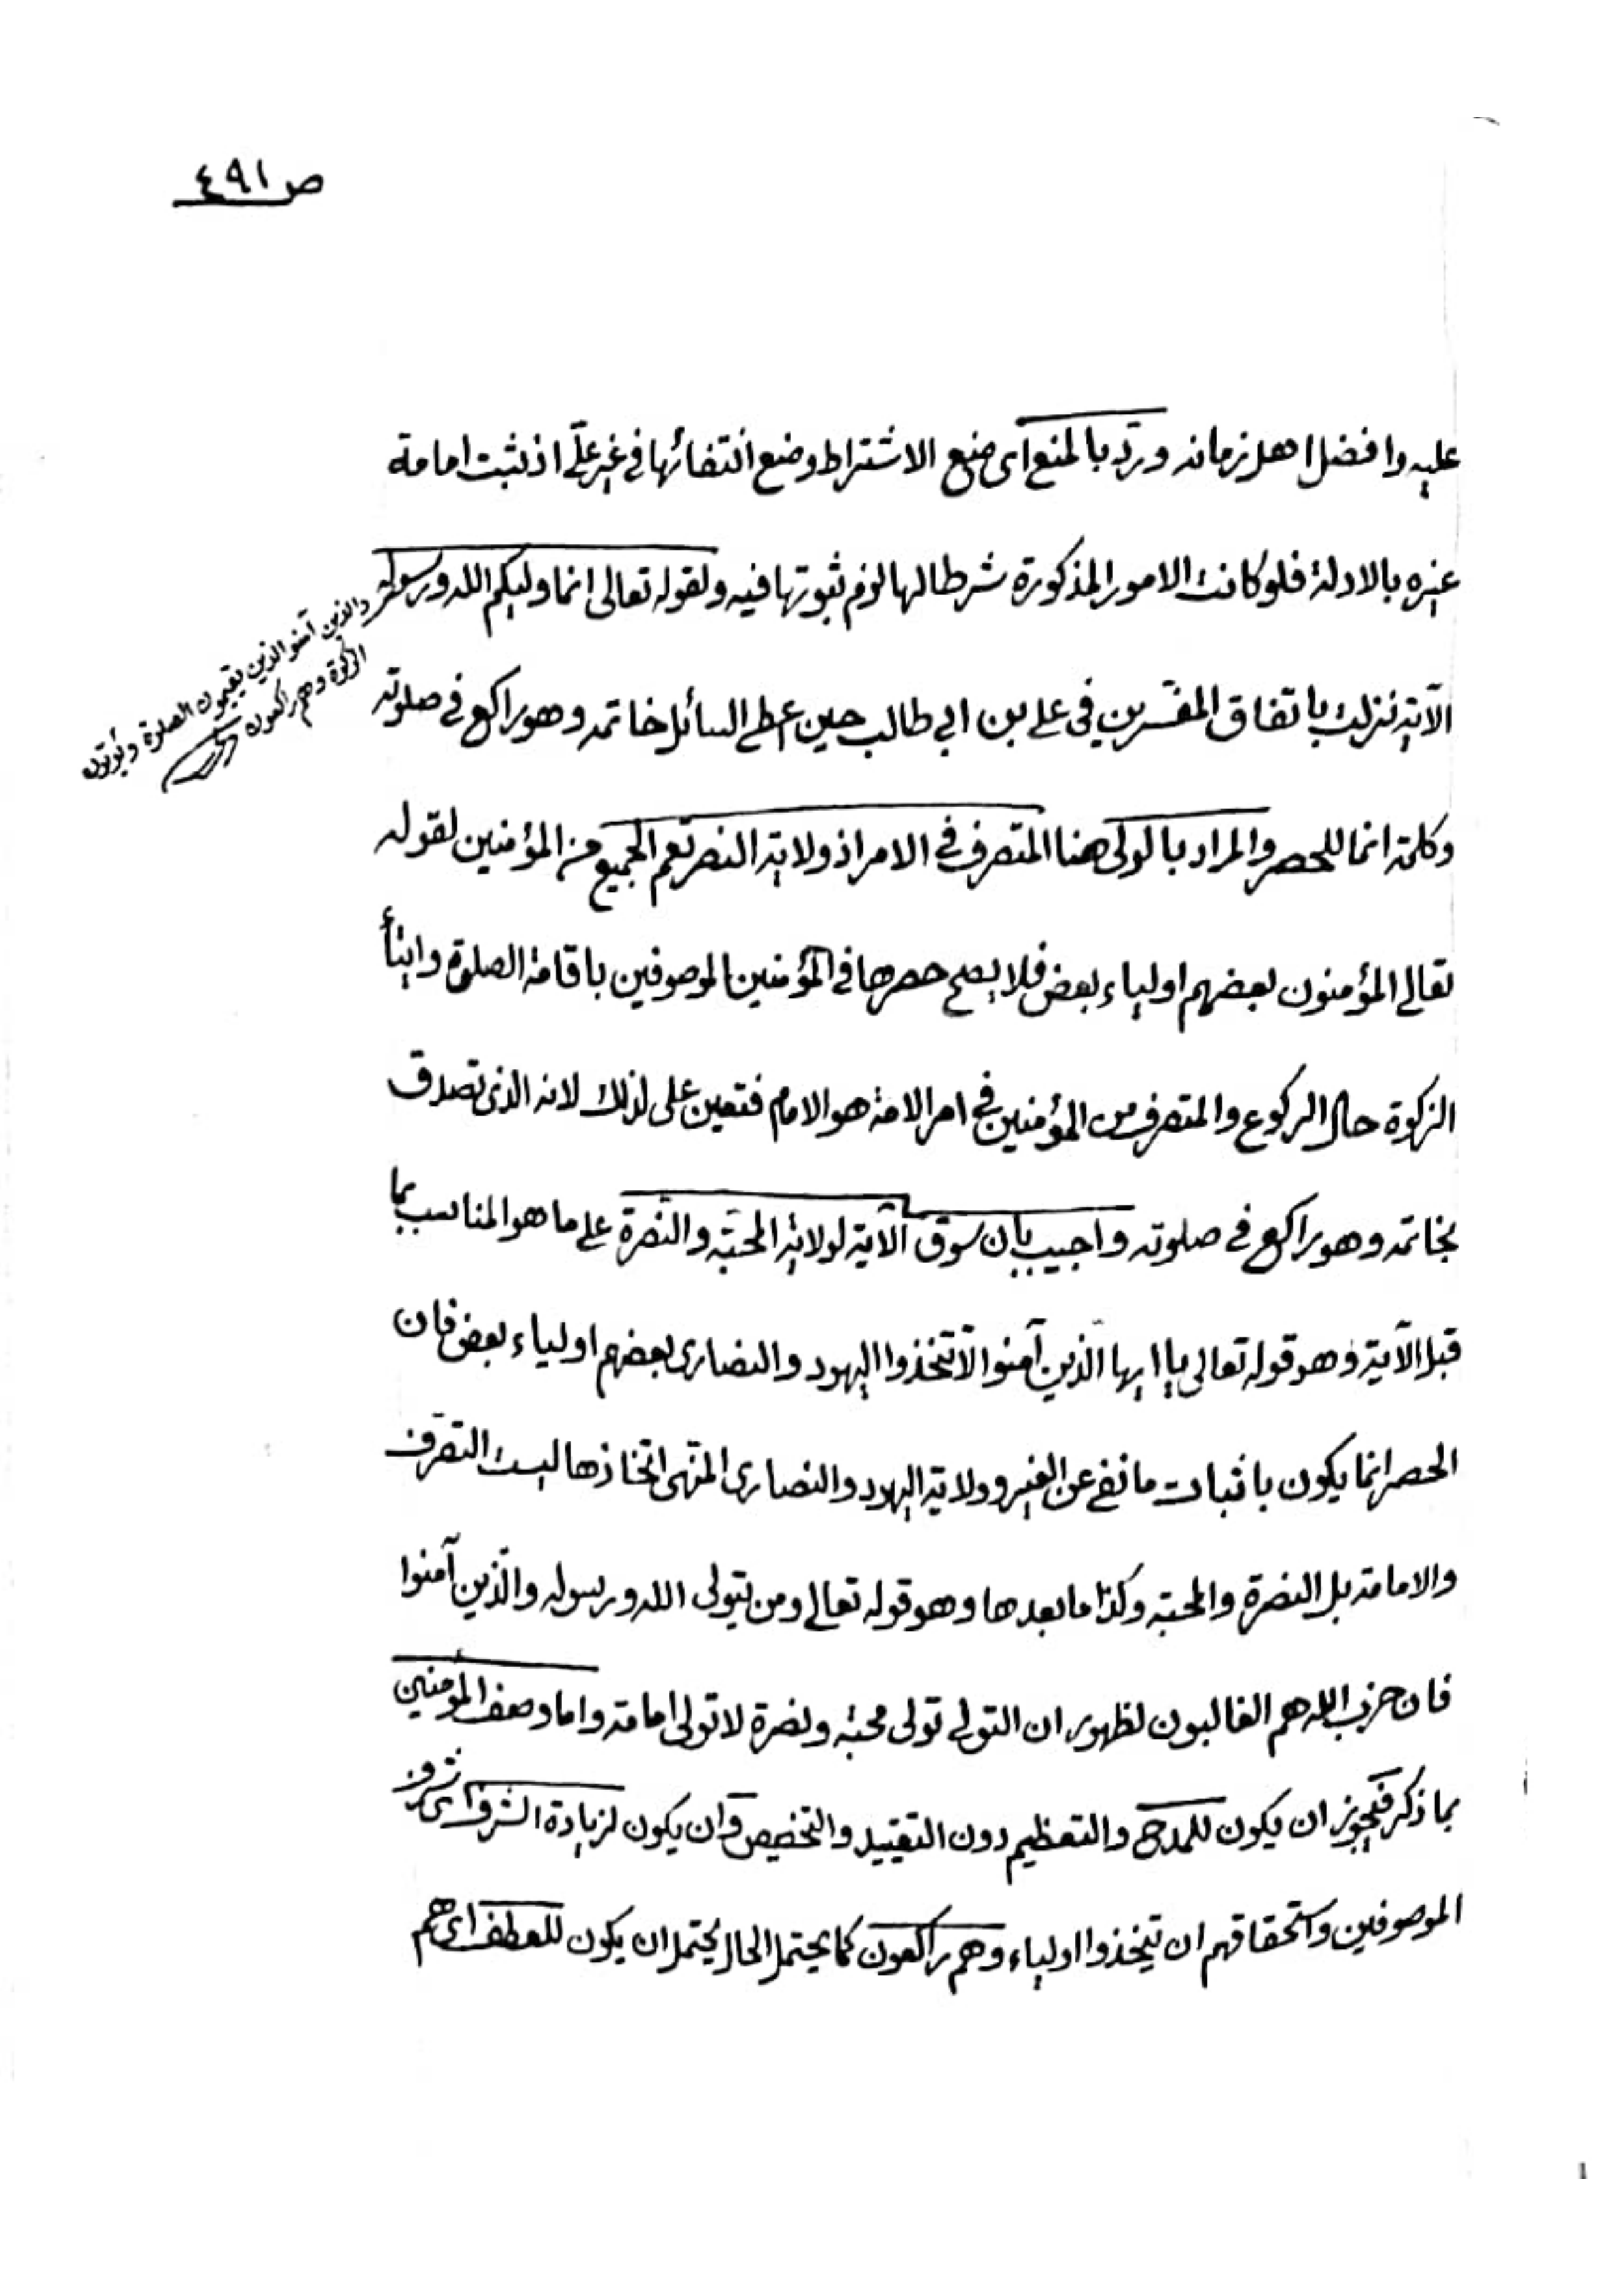 ص ٤٩١
عليه وافضل اهل زمانه ورد بالمنع اى منع الاشتراط ومنع انتفائها فى غير علىّ اذ ثبت امامة
غيره بالادلة فلو كانت الامور المذكورة شرطا لها لزم ثبوتها فيه ولقوله تعالى انما وليكم الله ورسوله
والذين آمنوا الذين يقيمون الصلوة ويؤتون
الزكوة وهم راكعون
الآية نزلت باتفاق المفسرين فى على بن ابى طالب حين اعطى السائل خاتمه وهو راكع فى صلوته
وكلمة انما للحصر والمراد بالولى هنا المتصرف فى الامر اذ ولاية النصر تعم الجميع من المؤمنين لقوله
تعالى المؤمنون بعضهم اولياء بعض فلا يصح حصرها فى المؤمنين الموصوفين باقامة الصلوة وايتأ
الزكوة حال الركوع والمتصرف من المؤمنين فى امر الامة هو الامام فتعين على لذلك لانه الذى تصدق
بخاتمه وهو راكع فى صلوته واجيب بان سوق الآية لولاية المحبّة والنصرة على ما هو المناسب بما
قبل الآية وهو قوله تعالى يا ايها الّذين آمنوا لا تتخذوا اليهود والنصارى بعضهم اولياء بعض فان
الحصر انما يكون باثبات ما نفى عن الغير وولاية اليهود والنصارى المنهى اتخاذها ليست التصرّف
والامامة بل النصرة والمحبّة وكذا ما بعدها وهو قوله تعالى ومن يتولى الله ورسوله والّذين آمنوا
فان حزب الله هم الغالبون لظهور ان التولى تولى محبّة ونصرة لا تولى امامة واما وصف المؤمنين
بما ذكر فيجوز ان يكون للمدح والتعظيم دون التقييد والتخصيص وان يكون لزيادة الشرف اى شرف
الموصوفين واستحقاقهم ان يتخذوا اولياء وهم راكعون كما يحتمل الحال يحتمل ان يكون للعطف اى هم